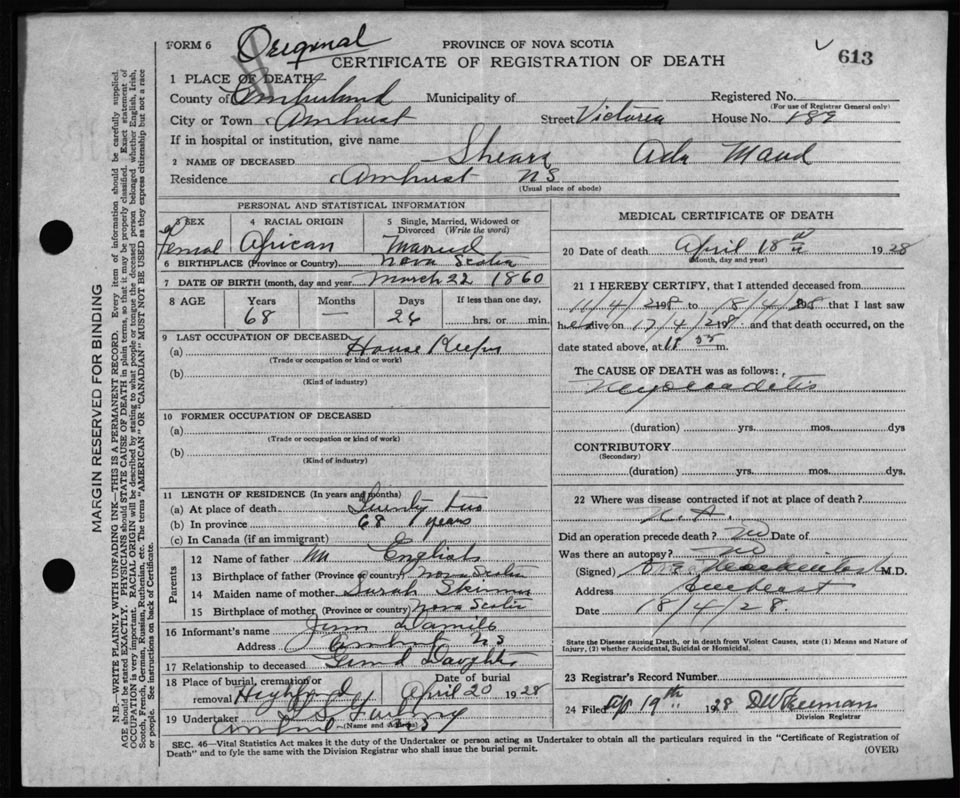 FORM 6 Original PROVINCE OF NOVA SCOTIA
CERTIFICATE OF REGISTRATION OF DEATH 613
1 PLACE OF DEATH
County of Cumberland Municipality of Registered No.
(For use of Registrar General only)
City or Town Amhurst Street Victoria House No. 189
If in hospital or institution, give name
2 NAME OF DECEASED Ada Maud
Residence Amhurst NS
(Usual place of abode)
PERSONAL AND STATISTICAL INFORMATION
3 SEX 4 RACIAL ORIGIN 5 Single, Married, Widowed or
Divorced (Write the word)
Femal African Married
6 BIRTHPLACE (Province or Country) Nova Scotia
7 DATE OF BIRTH (month, day and year) March 22 1860
8 AGE Years Months Days If less than one day,
68 — 26 hrs. or min.
9 LAST OCCUPATION OF DECEASED
(a) House Keeper
(Trade or occupation or kind or work)
(b)
(Kind of industry)
10 FORMER OCCUPATION OF DECEASED
(a)
(Trade or occupation or kind of work)
(b)
(Kind of industry)
11 LENGTH OF RESIDENCE (In years and months)
(a) At place of death Twenty two
(b) In province 68 years
(c) In Canada (if an immigrant)
Parents
12 Name of father Wm
13 Birthplace of father (Province or country) Nova Scotia
14 Maiden name of mother Sarah Skinner
15 Birthplace of mother (Province or country) Nova Scotia
16 Informant's name
Address Amhurst NS
17 Relationship to deceased Grand Daughter
18 Place of burial, cremation or Date of burial
removal Highland April 20 1928
19 Undertaker
(Name and Address)
MEDICAL CERTIFICATE OF DEATH
20 Date of death April 18 1928
(Month, day and year)
21 I HEREBY CERTIFY, that I attended deceased from
11/4/28 to 18/4/28 that I last saw
her alive on 17/4/28 and that death occurred, on the
date stated above, at m.
The CAUSE OF DEATH was as follows:
(duration) yrs. mos. dys
CONTRIBUTORY
(Secondary)
(duration) yrs. mos. dys.
22 Where was disease contracted if not at place of death?
N.A.
Did an operation precede death? No Date of
Was there an autopsy? No
(Signed) M.D.
Address Amherst
Date 18/4/28.
State the Disease causing Death, or in death from Violent Causes, state (1) Means and Nature of
Injury, (2) whether Accidental, Suicidal or Homicidal.
23 Registrar's Record Number
24 Filed Apr 19th 1928 D W Freeman
Division Registrar
SEC. 46—Vital Statistics Act makes it the duty of the Undertaker or person acting as Undertaker to obtain all the particulars required in the "Certificate of Registration of
Death" and to fyle the same with the Division Registrar who shall issue the burial permit. (OVER)
MARGIN RESERVED FOR BINDING
N.B.—WRITE PLAINLY WITH UNFADING INK—THIS IS A PERMANENT RECORD. Every item of information should be carefully supplied.
AGE should be stated EXACTLY. PHYSICIANS should STATE CAUSE OF DEATH in plain terms, so that it may be properly classified. Exact statement of
OCCUPATION is very important. RACIAL ORIGIN will be described by stating to what people or tongue the deceased person belonged whether English, Irish,
Scotch, French, German, Russian, Ruthenian, etc. The terms "AMERICAN" or "CANADIAN" MUST NOT BE USED as they express citizenship but not a race
or people. See instructions on back of Certificate.